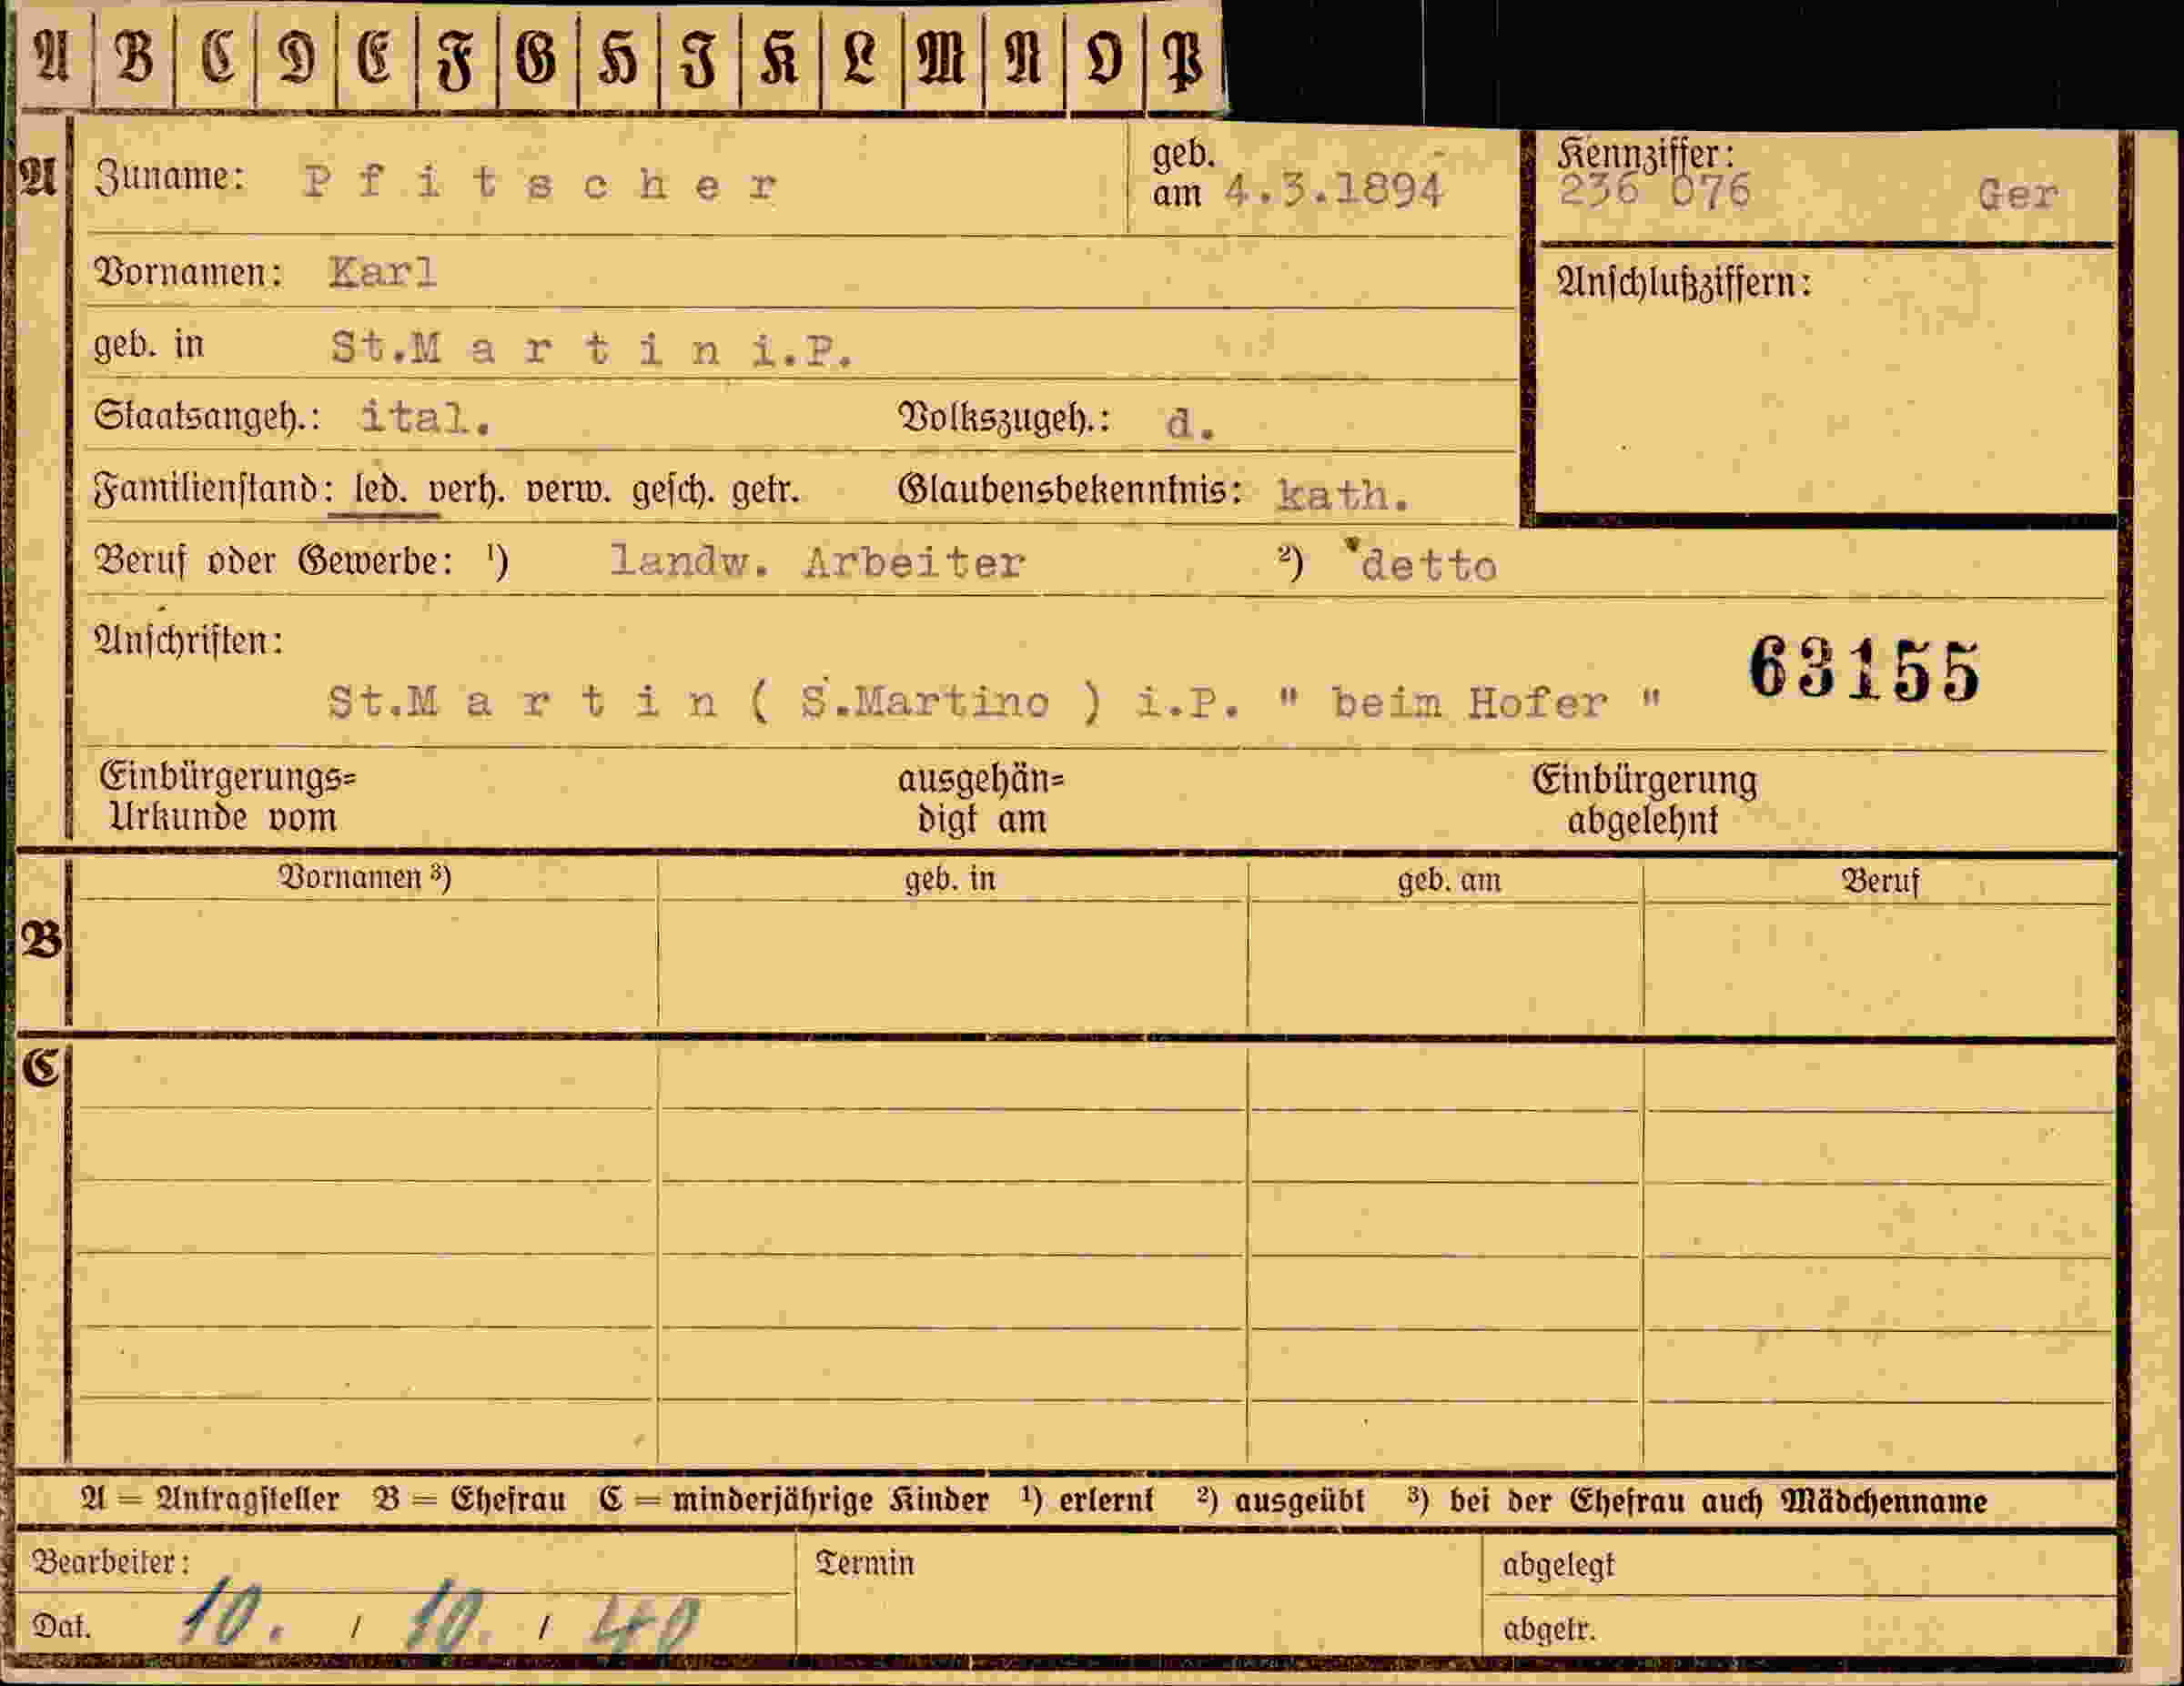 A B C D E F G H I K L M N O P
A Zuname: Pfitscher geb. am 4.3.1894 Kennziffer: 236 076 Ger
Vornamen: Karl Anschlußziffern:
geb. in St.Martin i.P.
Staatsangeh.: ital. Volkszugeh.: d.
Familienstand: led. verh. verw. gesch. getr. Glaubensbekenntnis: kath.
Beruf oder Gewerbe: ¹) landw. Arbeiter ²) detto
Anschriften:
63155
St.Martin ( S.Martino ) i.P. " beim Hofer "
Einbürgerungs= ausgehän= Einbürgerung
Urkunde vom digt am abgelehnt
Vornamen ³) geb. in geb. am Beruf
B
C
A = Antragsteller B = Ehefrau C = minderjährige Kinder ¹) erlernt ²) ausgeübt ³) bei der Ehefrau auch Mädchenname
Bearbeiter: Termin abgelegt
Dat. 10. / 10. / 40 abgetr.